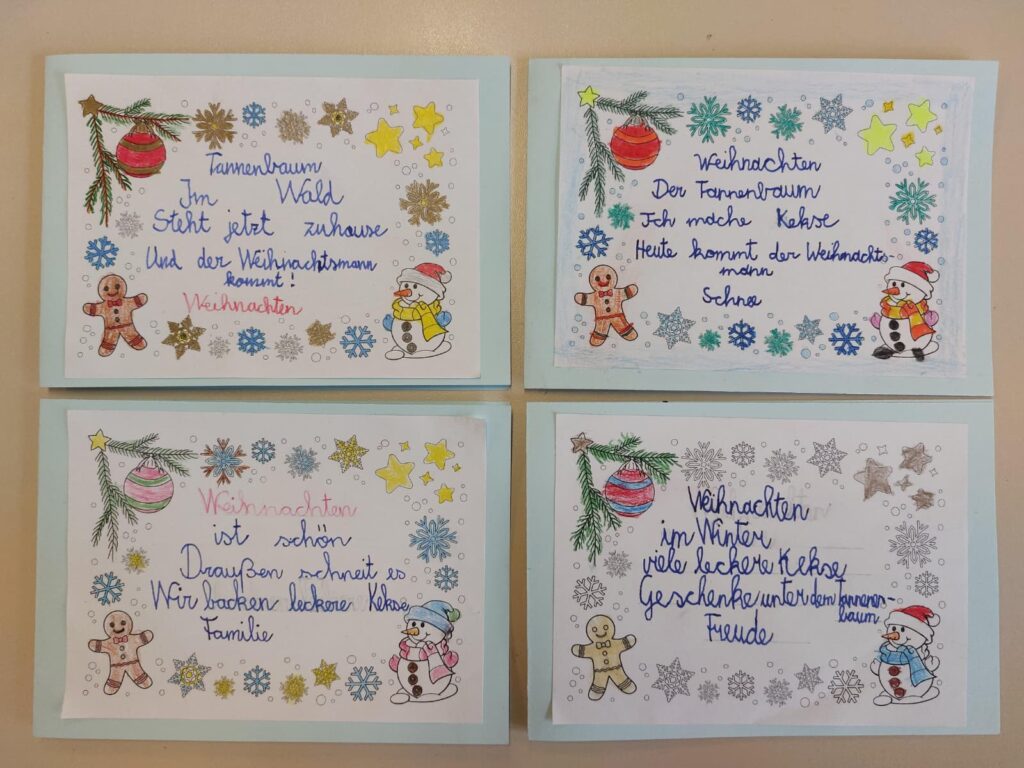 Tannenbaum
Im Wald
Steht jetzt zuhause
Und der Weihnachtsmann
kommt!
Weihnachten
Weihnachten
Der Tannenbaum
Ich mache Kekse
Heute kommt der Weihnachts-
mann
Schnee
Weihnachten
ist schön
Draußen schneit es
Wir backen leckere Kekse
Familie
Weihnachten
im Winter
viele leckere Kekse
Geschenke unter dem Tannenen-
baum
Freude